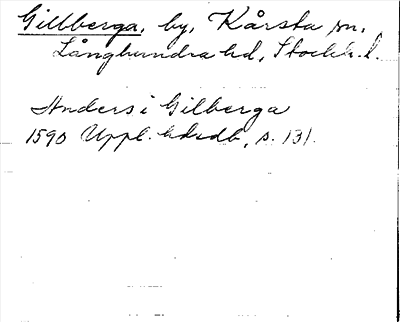 Gillberga, by, Kårsta sn,
Långhundra hd, Stockh. l.
Anders i Gilberga
1590 Uppl. hdsdb, s. 131.